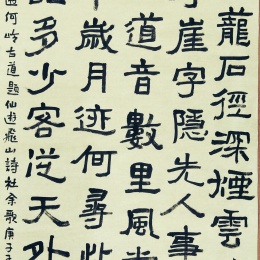 龍石徑深煙雲
崖字隱先人事
道音數里風
歲月迹何尋此
多少客從天外
何岭古道題仙遊飛山詩社余歌庚子